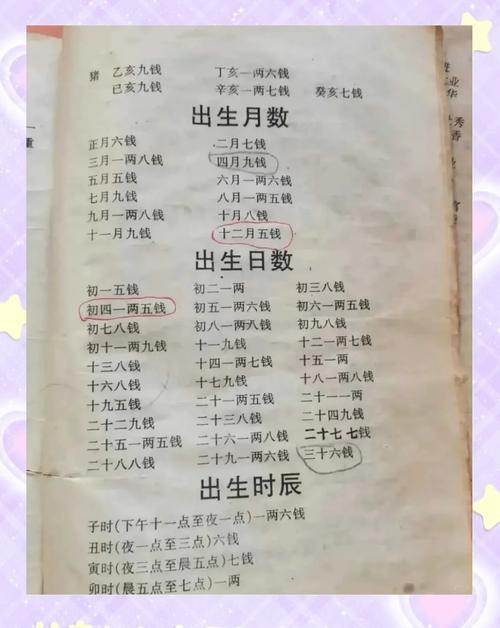 猪 乙亥九钱 丁亥一两六钱
已亥九钱 辛亥一两七钱 癸亥七钱
出生月数
正月六钱 二月七钱
三月一两八钱 四月九钱
五月五钱 六月一两六钱
七月九钱 八月一两五钱
九月一两八钱 十月八钱
十一月九钱 十二月五钱
出生日数
初一五钱 初二一两 初三八钱
初四一两五钱 初五一两六钱 初六一两五钱
初七八钱 初八一两六钱 初九八钱
初十一两九钱 十一九钱 十二一两七钱
十三八钱 十四一两七钱 十五一两
十六八钱 十七九钱 十八一两八钱
十九五钱 二十一两五钱 二十一一两
二十二九钱 二十三八钱 二十四九钱
二十五一两五钱 二十六一两八钱 二十七七钱
二十八八钱 二十九一两六钱 三十六钱
出生时辰
子时(下午十一点至夜一点)一两六钱
丑时(夜一点至三点)六钱
寅时(夜三点至晨五点)七钱
卯时(晨五点至七点)一两
业
华
秀
香